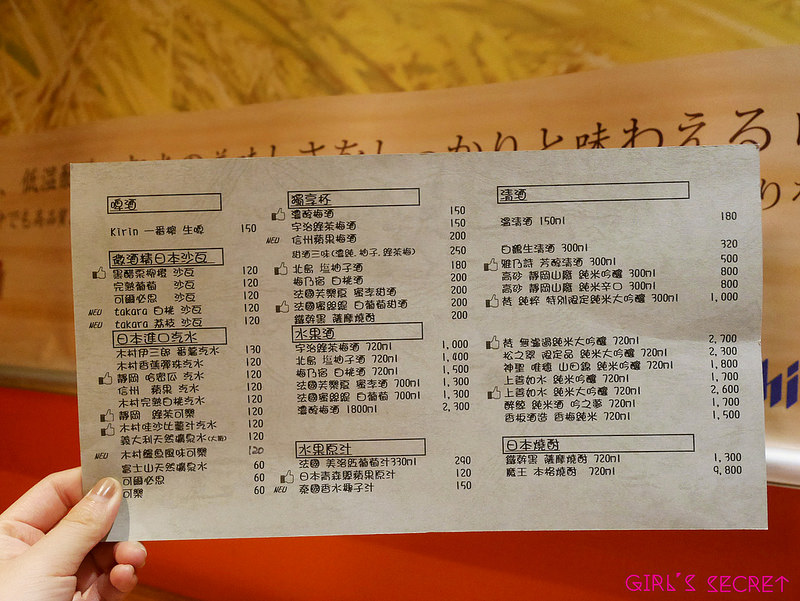 低温
味わえる
啤酒
Kirin 一番榨 生啤 150
微酒精日本沙瓦
黑醋栗柳橙 沙瓦 120
完熟葡萄 沙瓦 120
可爾必思 沙瓦 120
NEW takara 白桃 沙瓦 120
NEW takara 荔枝 沙瓦 120
日本進口汽水
木村伊三郎 番薑汽水 130
木村香蕉彈珠汽水 120
靜岡 哈密瓜 汽水 120
信州 蘋果 汽水 120
木村完熟白桃汽水 120
靜岡 綠茶可樂 120
木村哇沙比薑汁汽水 120
義大利天然礦泉水(大瓶) 120
NEW 木村鰻魚風味可樂 120
富士山天然礦泉水 60
可爾必思 60
可樂 60
獨享杯
濃醇梅酒 150
宇治綠茶梅酒 150
NEW 信州蘋果梅酒 200
甜酒三味(濃醇, 柚子, 綠茶梅) 250
北島 塩柚子酒 180
梅乃宿 白桃酒 200
法國芙樂原 蜜李甜酒 200
法國蜜鋜鋜 白葡萄甜酒 200
鐵幹黑 薩摩燒酎 200
水果酒
宇治綠茶梅酒 720ml 1,000
北島 塩柚子酒 720ml 1,400
梅乃宿 白桃酒 720ml 1,500
法國芙樂原 蜜李酒 700ml 1,300
法國蜜鋜鋜 白葡萄 700ml 1,300
濃醇梅酒 1800ml 2,300
水果原汁
法國 美洛臥葡萄汁330ml 290
日本青森縣蘋果原汁 120
NEW 泰國香水椰子汁 150
清酒
溫清酒 150ml 180
白鶴生清酒 300ml 320
雅乃詩 芳醇清酒 300ml 500
高砂 靜岡山廢 純米吟釀 300ml 800
高砂 靜岡山廢 純米辛口 300ml 800
梵 純粹 特別限定純米大吟釀 300ml 1,000
梵 無濾過純米大吟釀 720ml 2,700
松之翠 限定品 純米大吟釀 720ml 2,300
神聖 唯穗 山田錦 純米吟釀 720ml 1,800
上善如水 純米吟釀 720ml 1,700
上善如水 純米大吟釀 720ml 2,600
醉鯨 純米酒 吟之夢 720ml 1,700
香坂酒造 香梅純米 720ml 1,500
日本燒酎
鐵幹黑 薩摩燒酎 720ml 1,300
魔王 本格燒酎 720ml 9,800
GIRL'S SECRET